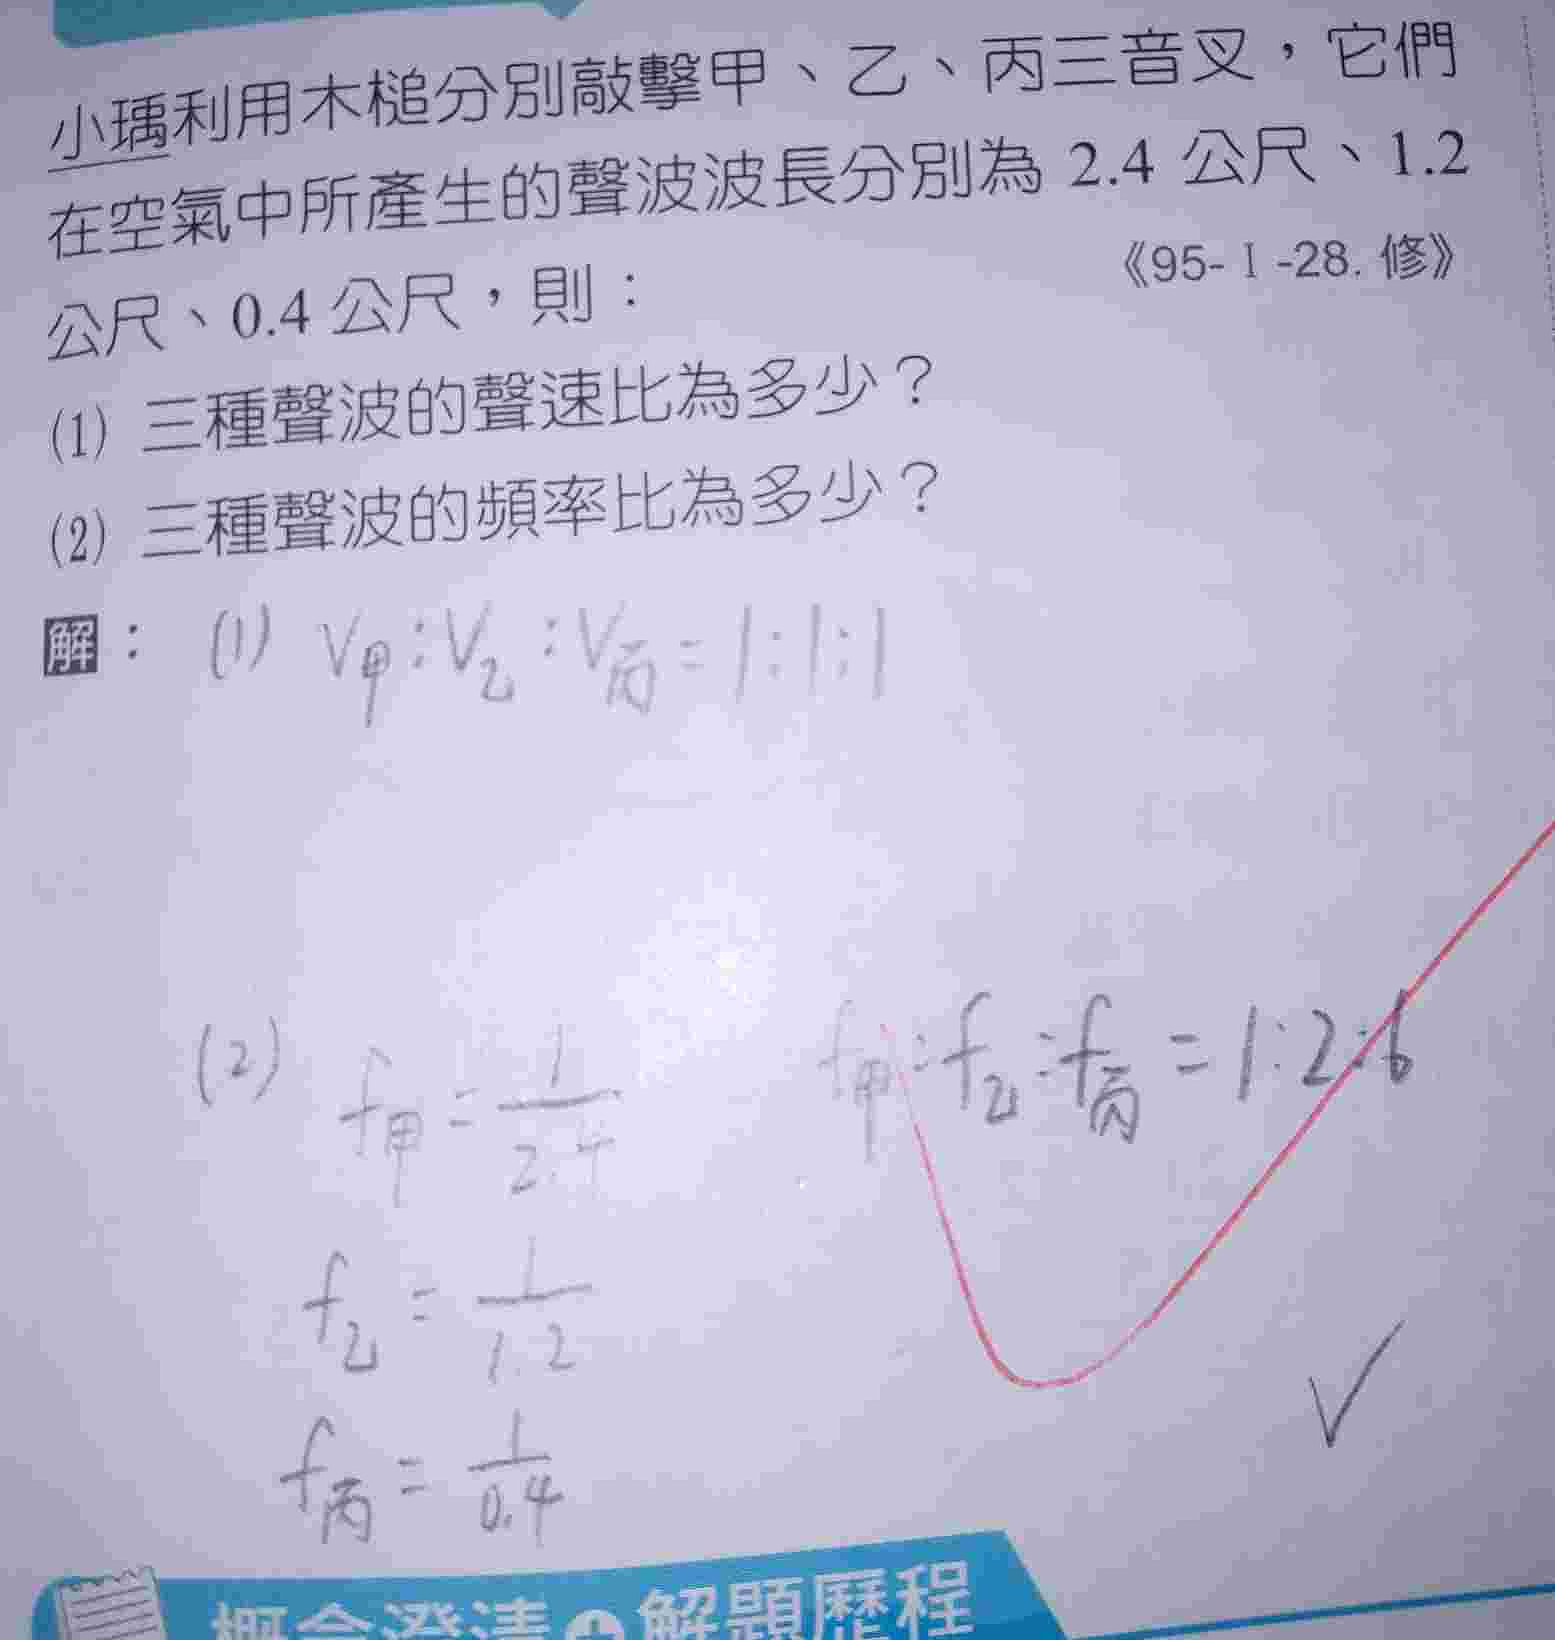 小瑀利用木槌分別敲擊甲、乙、丙三音叉，它們
在空氣中所產生的聲波波長分別為 2.4 公尺、1.2
公尺、0.4 公尺，則： 《95-Ⅰ-28. 修》
(1) 三種聲波的聲速比為多少？
(2) 三種聲波的頻率比為多少？
解： (1) V甲:V乙:V丙=1:1:1
(2) f甲=1/2.4 f甲:f乙:f丙=1:2:6
f乙=1/1.2
f丙=1/0.4
概念澄清+解題歷程